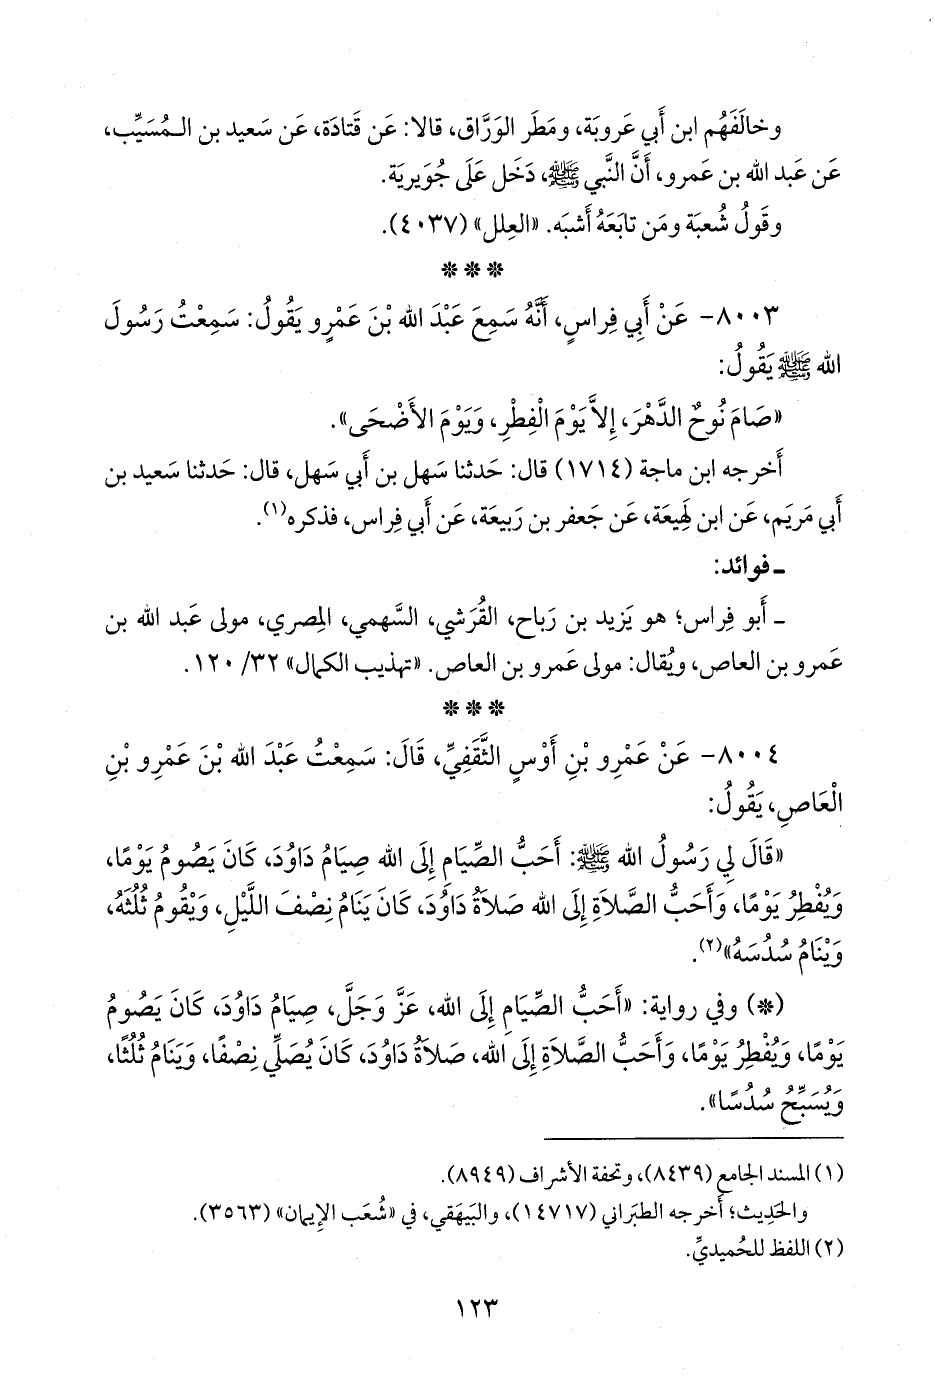 وخالَفَهُم ابن أَبي عَروبَة، ومَطَر الوَرَّاق، قالا: عَن قَتادَة، عَن سَعيد بن الـمُسَيِّب،
عَن عَبد الله بن عَمرو، أَنَّ النَّبي ﷺ، دَخَل عَلَى جُوَيرية.
وقَولُ شُعبَة ومَن تابَعَهُ أَشبَه. «العِلل» (٤٠٣٧).
* * *
٨٠٠٣- عَنْ أَبِي فِراسٍ، أَنَّهُ سَمِعَ عَبْدَ الله بْنَ عَمْرٍو يَقُولُ: سَمِعْتُ رَسُولَ
الله ﷺ يَقُولُ:
«صَامَ نُوحٌ الدَّهْرَ، إِلاَّ يَوْمَ الْفِطْرِ، وَيَوْمَ الأَضْحَى».
أَخرجه ابن ماجة (١٧١٤) قال: حَدثنا سَهل بن أَبي سَهل، قال: حَدثنا سَعيد بن
أَبي مَريَم، عَن ابن لَهِيعَة، عَن جَعفر بن رَبيعَة، عَن أَبي فِراس، فذكره(١).
ـ فوائد:
ـ أَبو فِراس؛ هو يَزيد بن رَباح، القُرَشي، السَّهمي، المِصري، مولى عَبد الله بن
عَمرو بن العاص، ويُقال: مولى عَمرو بن العاص. «تهذيب الكمال» ٣٢/ ١٢٠.
* * *
٨٠٠٤- عَنْ عَمْرِو بْنِ أَوْسٍ الثَّقَفِيِّ، قَالَ: سَمِعْتُ عَبْدَ الله بْنَ عَمْرِو بْنِ
الْعَاصِ، يَقُولُ:
«قَالَ لِي رَسُولُ الله ﷺ: أَحَبُّ الصِّيَامِ إِلَى الله صِيَامُ دَاوُدَ، كَانَ يَصُومُ يَوْمًا،
وَيُفْطِرُ يَوْمًا، وَأَحَبُّ الصَّلَاةِ إِلَى الله صَلَاةُ دَاوُدَ، كَانَ يَنَامُ نِصْفَ اللَّيْلِ، وَيَقُومُ ثُلُثَهُ،
وَيَنَامُ سُدُسَهُ»(٢).
(*) وفي رواية: «أَحَبُّ الصِّيَامِ إِلَى الله، عَزَّ وَجَلَّ، صِيَامُ دَاوُدَ، كَانَ يَصُومُ
يَوْمًا، وَيُفْطِرُ يَوْمًا، وَأَحَبُّ الصَّلَاةِ إِلَى الله، صَلَاةُ دَاوُدَ، كَانَ يُصَلِّي نِصْفًا، وَيَنَامُ ثُلُثًا،
وَيُسَبِّحُ سُدُسًا».
(١) المسند الجامع (٨٤٣٩)، وتحفة الأشراف (٨٩٤٩).
والحَدِيث؛ أَخرجه الطبَراني (١٤٧١٧)، والبَيهَقي، في «شُعَب الإِيمان» (٣٥٦٣).
(٢) اللفظ للحُميديِّ.
١٢٣